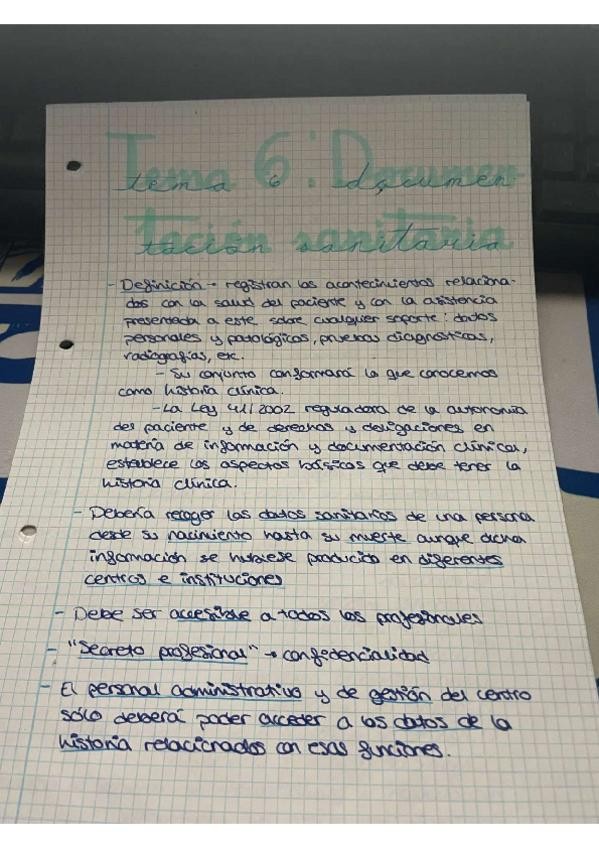 Tema 6: Documen-
tación sanitaria
tema 6 documen
tación sanitaria
- Definición → registran los acontecimientos relaciona-
dos con la salud del paciente y con la asistencia
presentada a este sobre cualquier soporte: datos
personales y patológicos, pruebas diagnósticas,
radiografías, etc.
- Su conjunto conformará lo que conocemos
como historia clínica.
- La Ley 41/2002 reguladora de la autonomía
del paciente y de derechos y obligaciones en
materia de información y documentación clínica,
establece los aspectos básicos que debe tener la
historia clínica.
- Debería recoger los datos sanitarios de una persona
desde su nacimiento hasta su muerte aunque dicha
información se hubiese producido en diferentes
centros e instituciones
- Debe ser accesible a todos los profesionales
- "Secreto profesional" → confidencialidad
- El personal administrativo y de gestión del centro
sólo deberá poder acceder a los datos de la
historia relacionados con esas funciones.